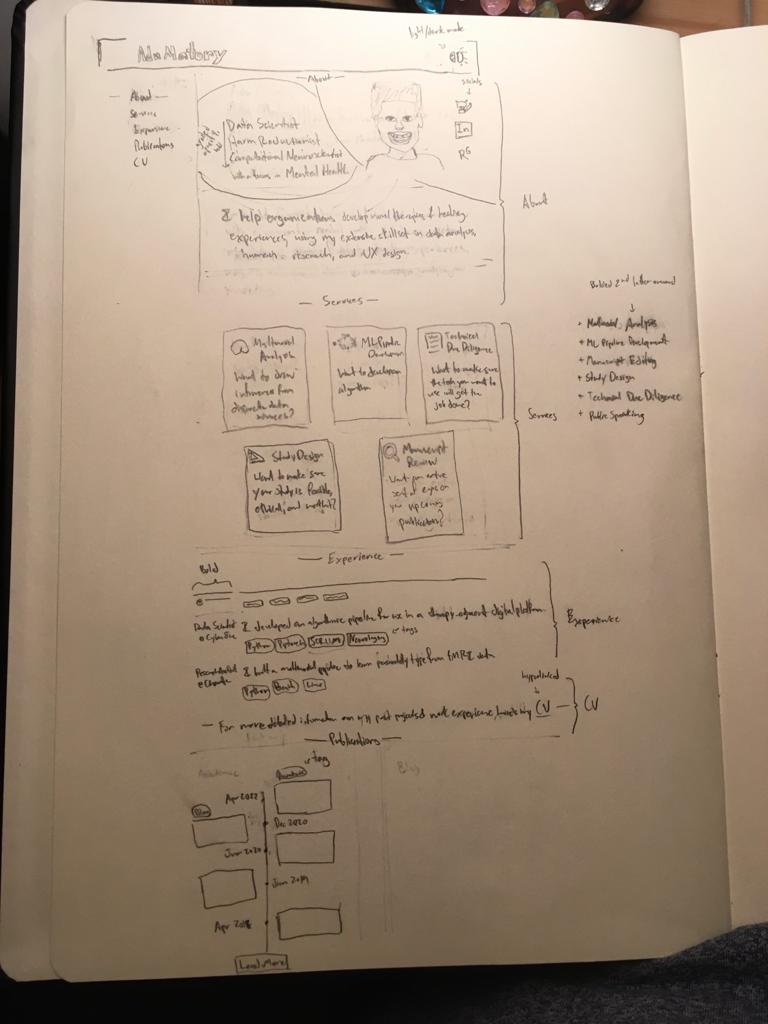 light/dark mode
Ada Mallory
About
socials
About
Services
Experience
Publications
CV
Data Scientist
Harm Reductionist
Computational Neuroscientist
with a focus in Mental Health
In
RG
About
I help organizations develop novel therapies & healing
experiences, using my extensive skillset in data analysis,
human research, and UX design.
Services
Multimodal
Analysis
Want to draw
inferences from
disparate data
sources?
ML Pipeline
Development
Want to develop an
algorithm
Technical
Due Diligence
Want to make sure
the tech you want to
use will get the
job done?
Services
Study Design
Want to make sure
your study is feasible,
ethical, and
Manuscript
Review
Want
set of eyes on
your upcoming
publication?
Bolded 2nd letter onward
Multimodal Analysis
ML Pipeline Development
Manuscript Editing
Study Design
Technical Due Diligence
Public Speaking
Experience
Bold
Data Scientist
I developed an algorithmic pipeline for use in a therapy-adjacent digital platform
Python
Pytorch
tags
Experience
I built a multimodal pipeline to learn personality type from FMRI data
Python
Bash
Linux
hyperlinked
For more detailed information on my past projects & work experience,
CV
CV
Publications
tag
Academic
Blog
Apr 2022
Blog
Dec 2020
Jun 2020
Jan 2019
Apr 2018
Load More